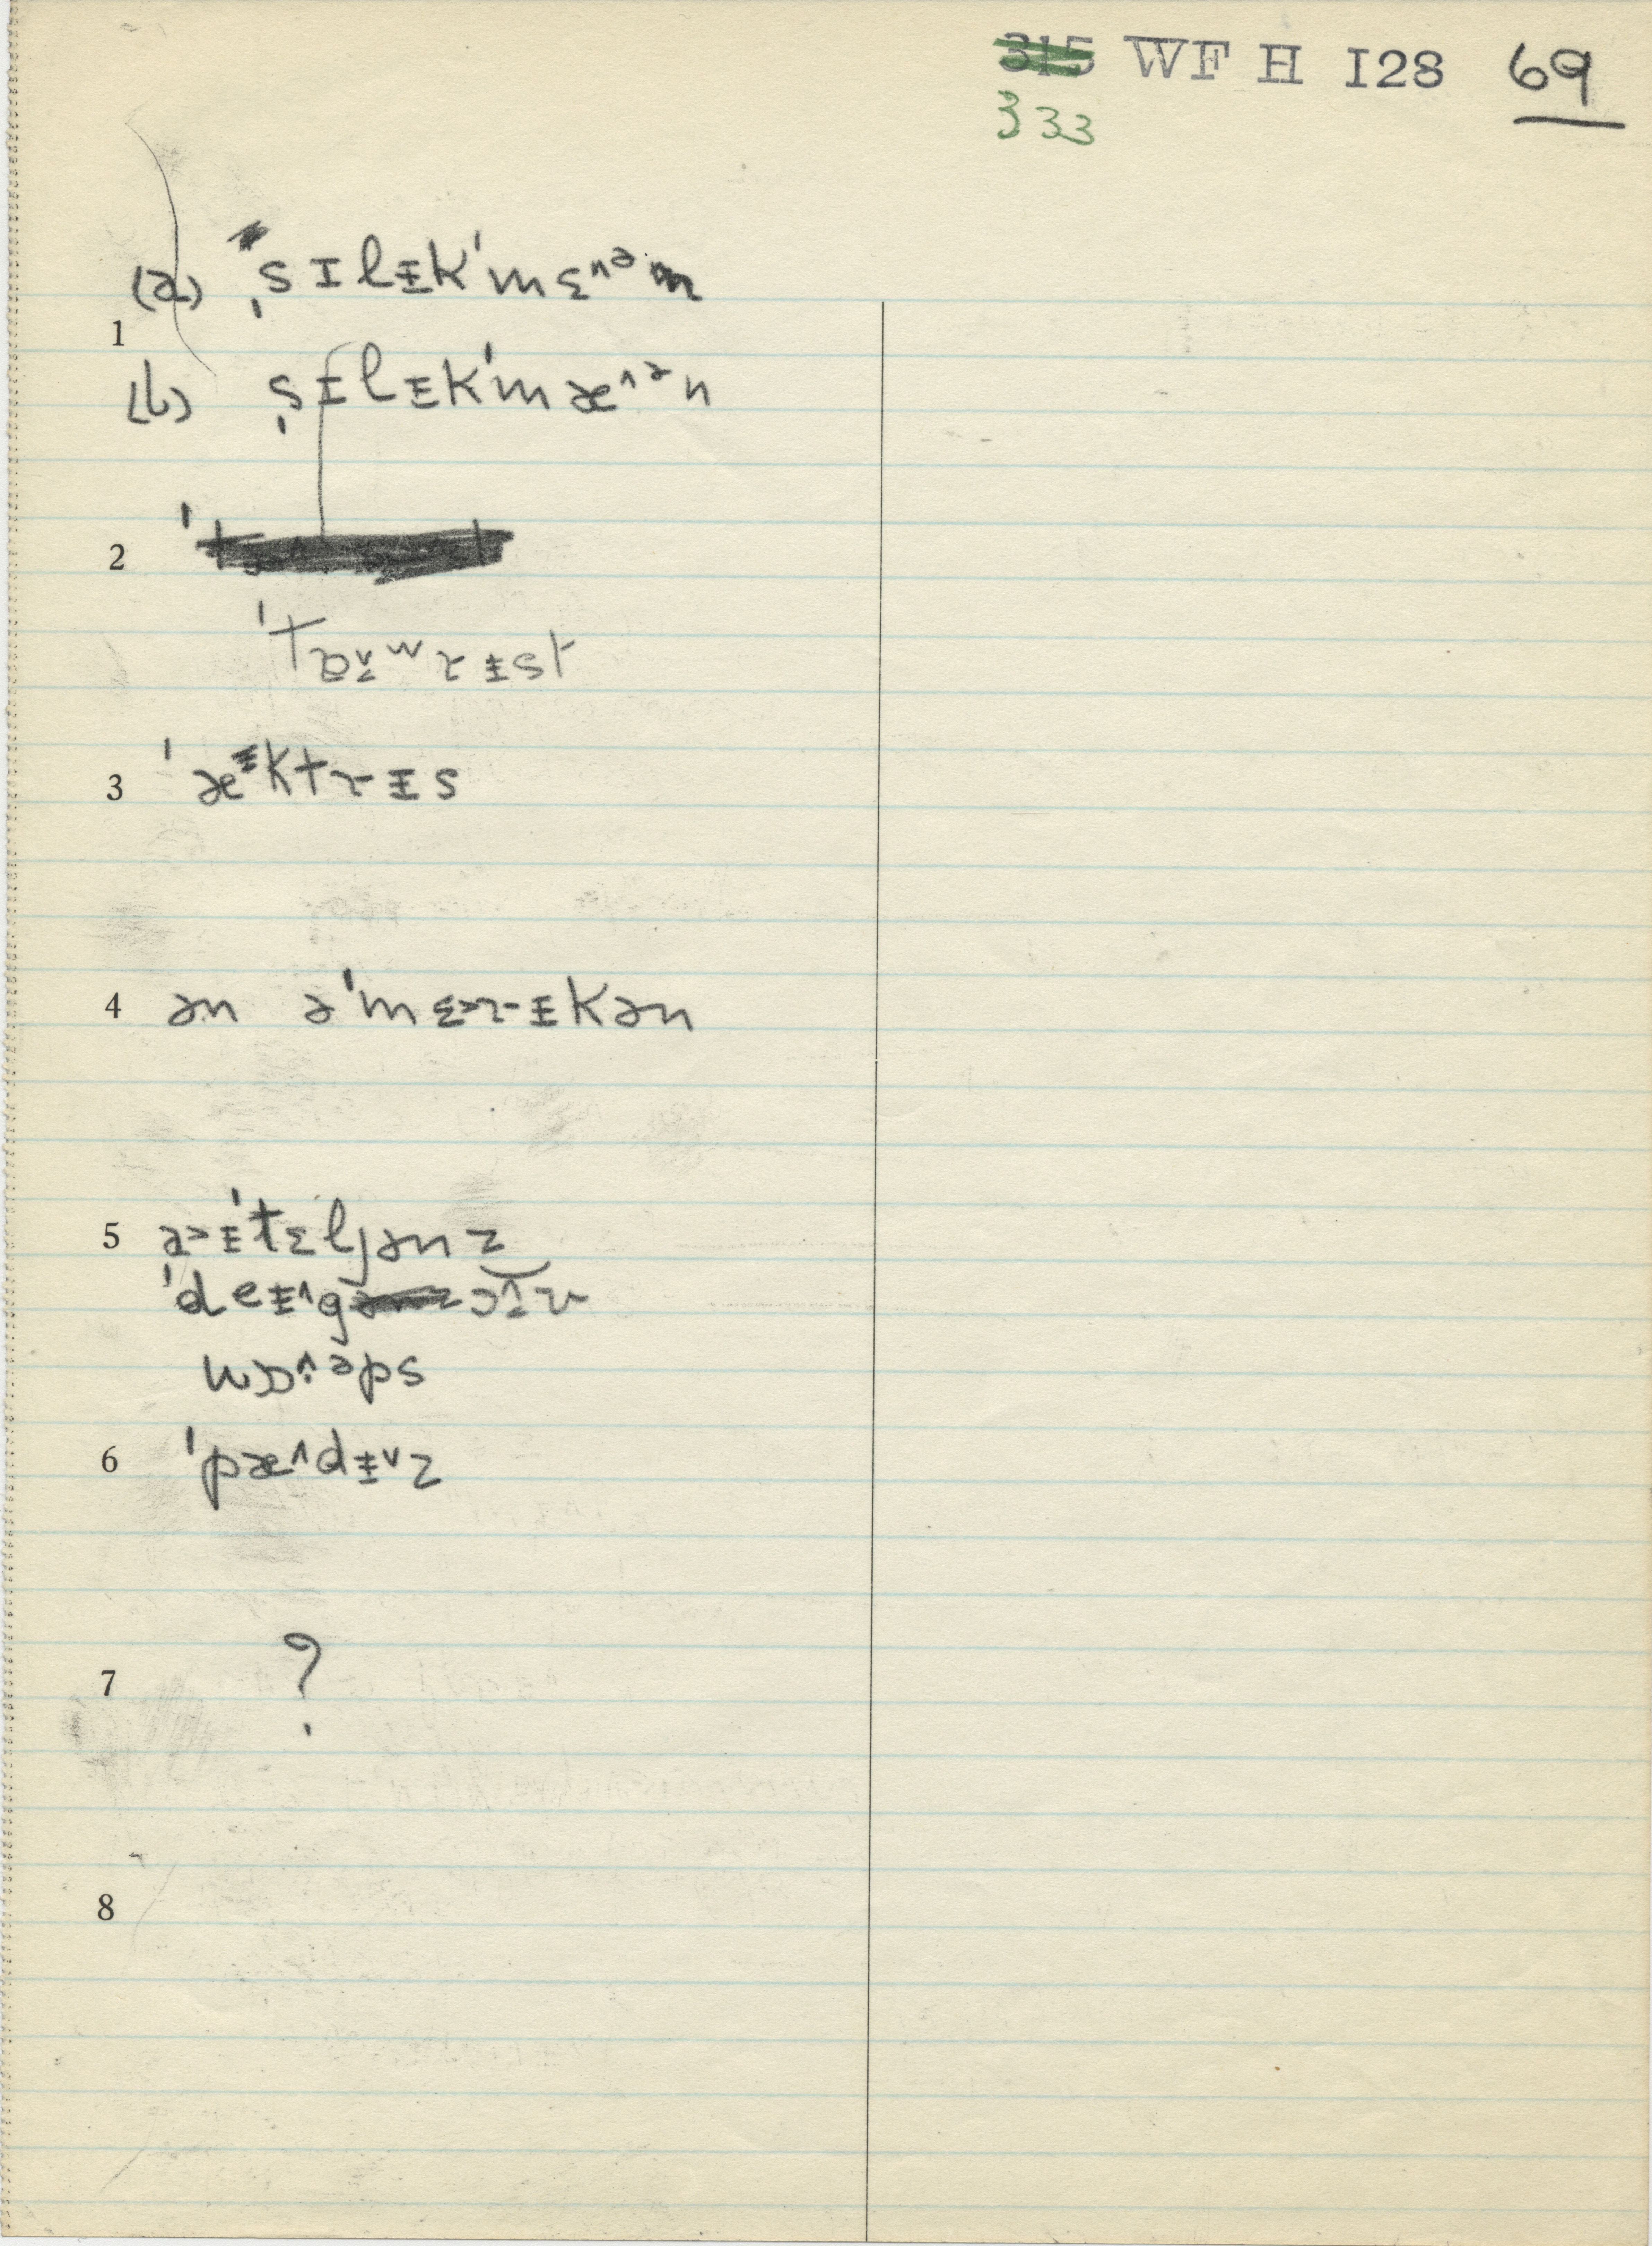 315 WF H I28 69
333
(a) ˌsɪlɪ̵kˈmɛ^əm
1
(b) ˌsɪlɪ̵kˈmæ^ən
2
ˈtɒv̱wɹɪ̵st
3 ˈæɪ̵ktɹɪ̵s
4 ən əˈmɛ>ɹɪ̵kən
5 ə>ɪ̵ˈtɛljənz
ˈdeɪ̵^g
wɒ^əps
6 ˈpæ^dɪ̵ᵛz
7 ?
8